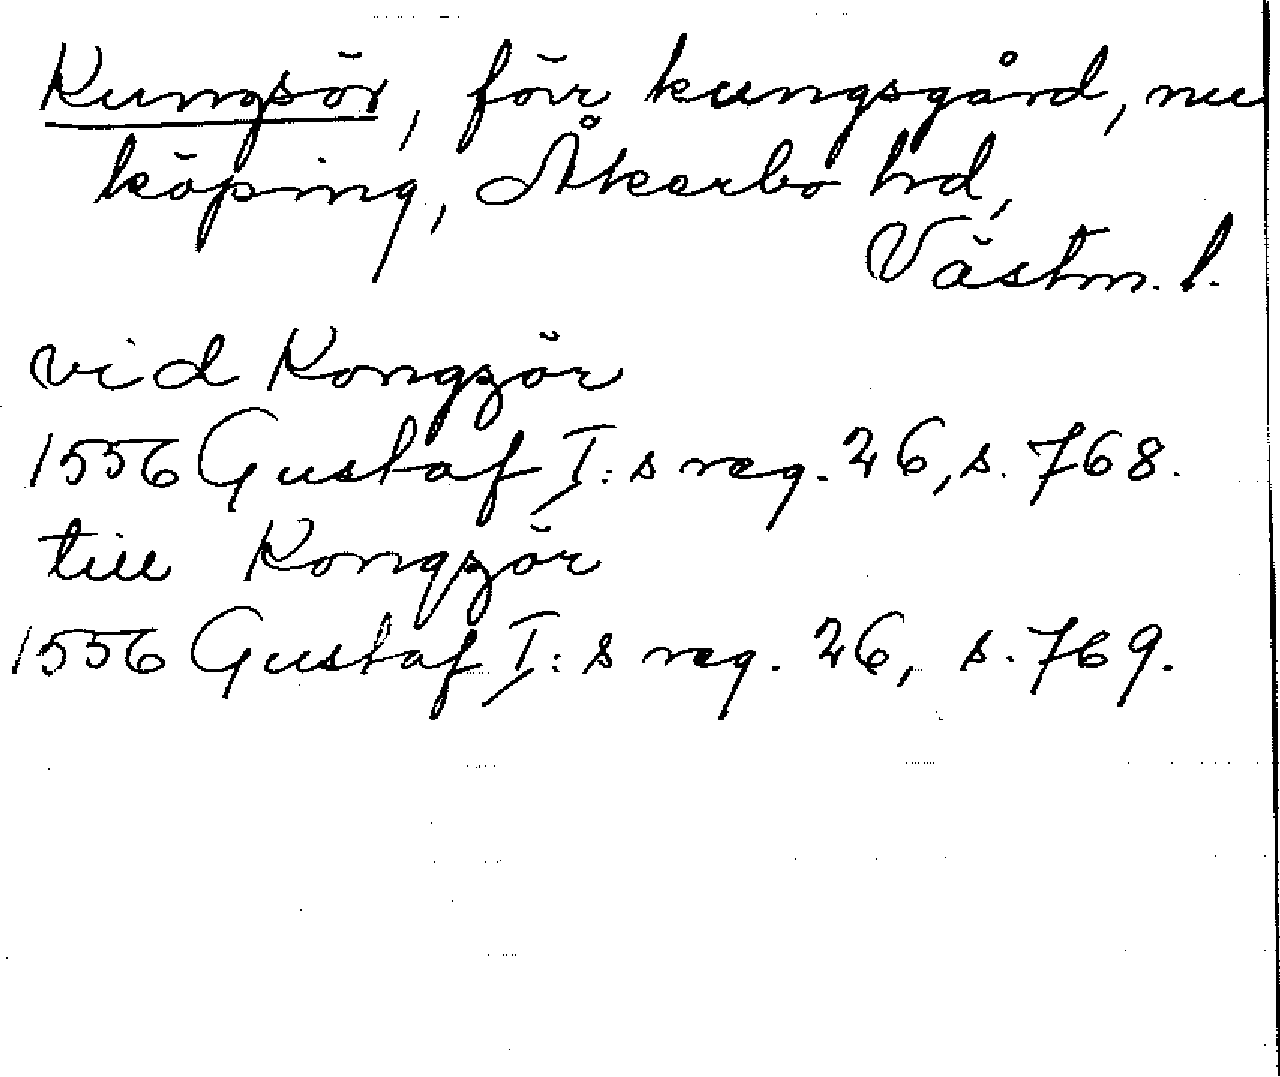 Kungsör, förr kungsgård, nu
köping, Åkerbo hd,
Västm. l.
vid Kongzör
1556 Gustaf I:s reg. 26, s. 768.
till Kongzör
1556 Gustaf I:s reg. 26, s. 769.